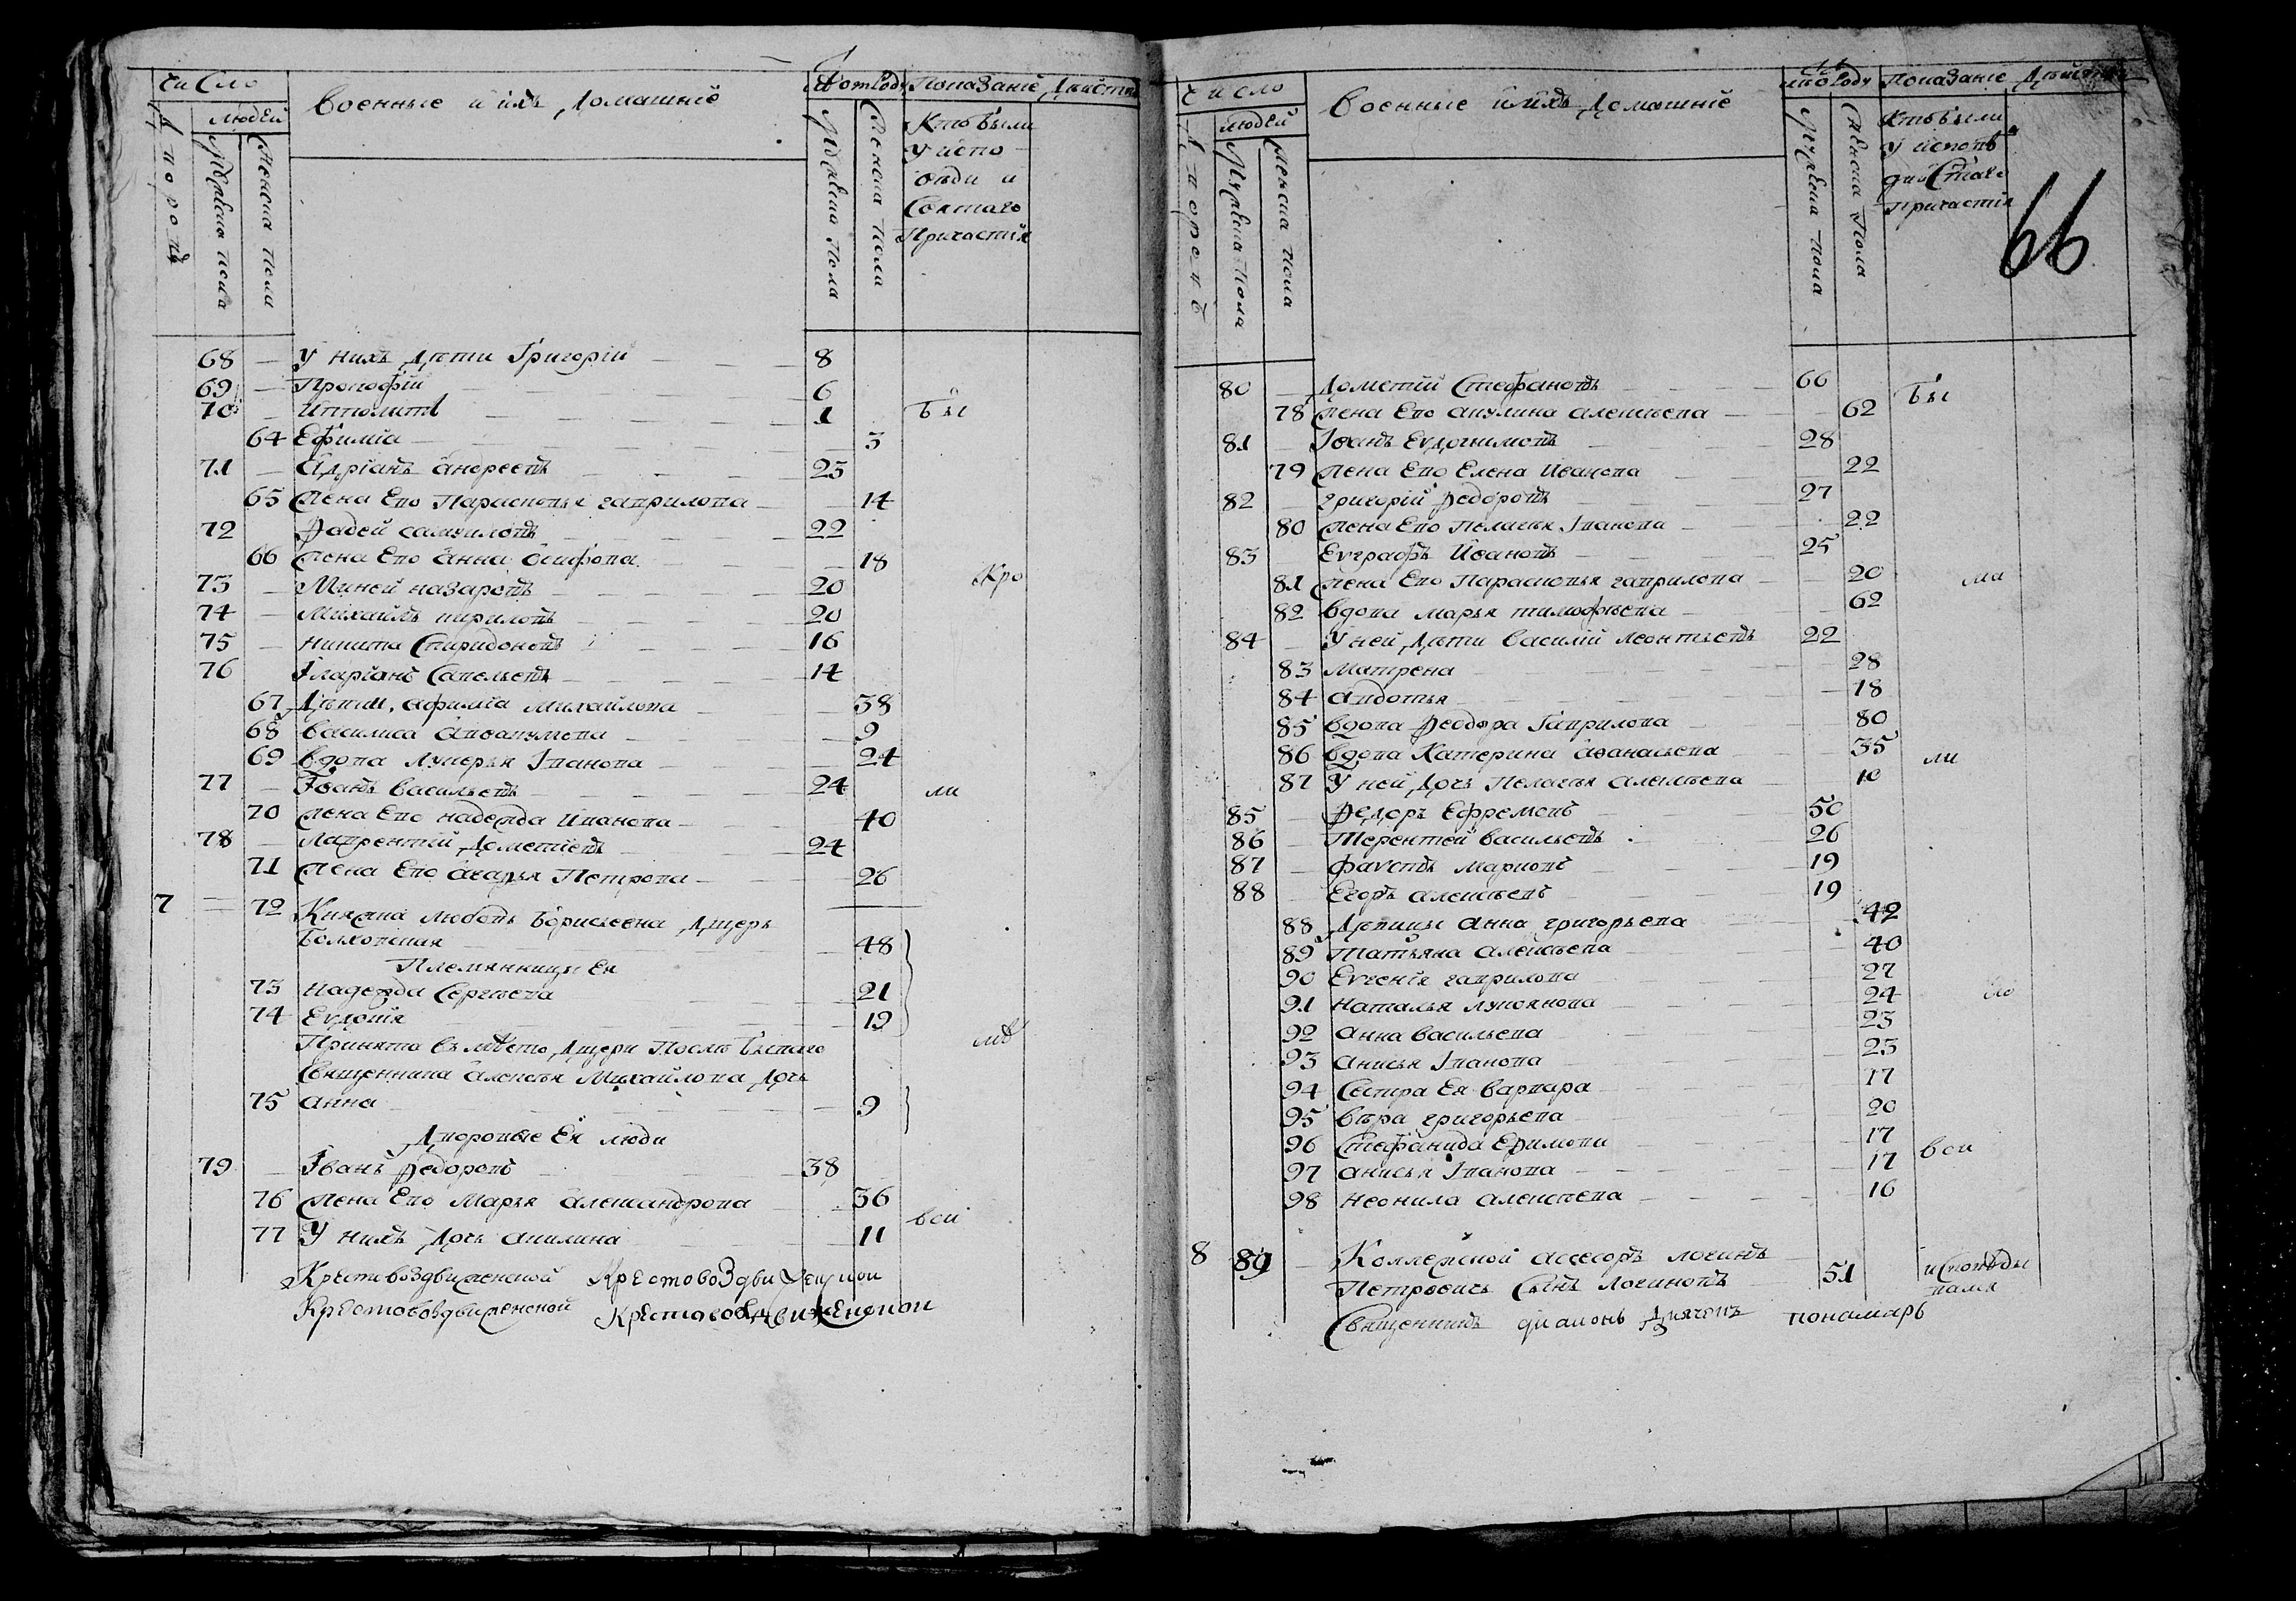 Число
людей
дворовъ
Мужеска пола
Женска пола
Военные и ихъ домашніе
Мужеска пола
Женска пола
Показаніе дѣйства
Кто были
у испо
вѣди и
Святаго
Причастія
68 — У нихъ дѣти Григоріи 8
69 — Прокофій 6
70 — Ипполитъ 1 бы
64 Ефиміа 3
71 — Адріанъ Андреевъ 23
65 жена Его Парасковья гаврилова 14
72 Фадей самуиловъ 22
66 жена Его Анна Осифова 18
73 — Миней назаровъ 20 Кро
74 — Михаилъ кириловъ 20
75 — Никита Спиридоновъ 16
76 Іларіанъ Савельевъ 14
67 Дѣвки, Афиміа Михайлова 38
68 Василиса 9
69 вдова Лукерья Іванова 24
77 — Іоанъ Васильевъ 24 ли
70 жена Его надежда Иванова 40
78 — Лаврентій Дометіевъ 24
71 жена Его Петрова 26
7 72 Княжна Любовь Борисовна Дщерь
Болховская 48
Племянницы Ея
73 Надежда Сергеева 21
74 Евдокія 19
Принята въ мѣсто Дщери послѣ бывшаго
Священника Алексѣя Михайлова Дочь
75 Анна 9
Дворовые Ея люди
79 — Іванъ Федоровъ 38
76 жена Его Марья Александрова 36
77 У нихъ Дочь Акилина 11 вси
Крестовоздвиженской Крестовоздвиженской
Крестовоздвиженской Крестовоздвиженской
Число
людей
Мужеска пола
Женска пола
Военные и ихъ домашніе
Мужеска пола
Женска пола
Показаніе дѣйства
Кто были
у исповѣ
ди и Стаго
причастія
66
80 — Дометій Стефановъ 66 бы
78 жена Его Акулина Алексѣева 62
81 Іоанъ Евдокимовъ 28
79 жена Его Елена Иванова 22
82 григорій Федоровъ 27
80 жена Его Пелагея Іванова 22
83 Евграфъ Ивановъ 25
81 жена Его Парасковья гаврилова 20
82 вдова марья тимофѣева 62
84 — У ней Дѣти Василій леонтьевъ 22
83 Матрена 28
84 Авдотья 18
85 вдова Феодора Гаврилова 80
86 вдова Катерина Афанасьева 35 ли
87 У ней Дочь Пелагея Алексѣева 10
85 Федоръ Ефремовъ 50
86 Терентей васильевъ 26
87 — Марковъ 19
88 — Егоръ Алексѣевъ 19
88 Дѣвицы Анна григорьева 42
89 Татьяна Алексѣева 40
90 Евгенія гаврилова 27
91 Наталья Лукоянова 24
92 Анна васильева 23
93 Анисья Іванова 23
94 Сестра Ея варвара 17
95 вѣра григорьева 20
96 Стефанида Ефимова 17
97 Анисья Іванова 17 вси
98 Неонила Алексѣева 16
8 89 — Коллежской Ассесоръ логинъ
Петровичь Сынъ Логиновъ 51
Священникъ Диаконъ Дьячекъ пономарь